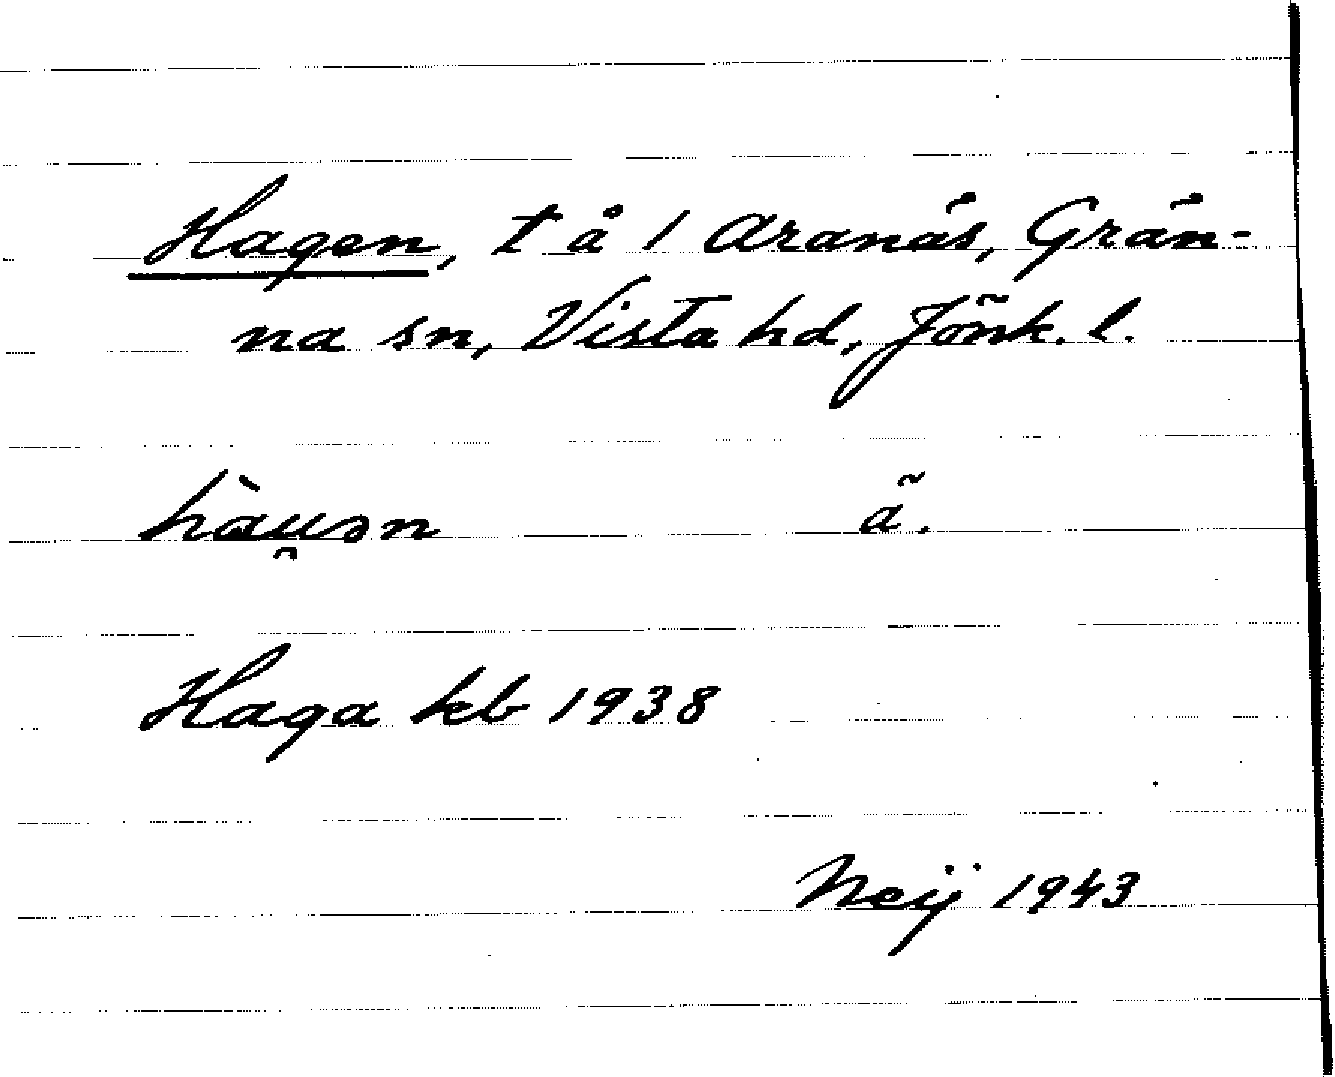 Hagen, t å 1 Aranäs, Grän-
na sn, Vista hd, Jönk. l.
hàu̯ən ã.
Haga kb 1938
Neij 1943